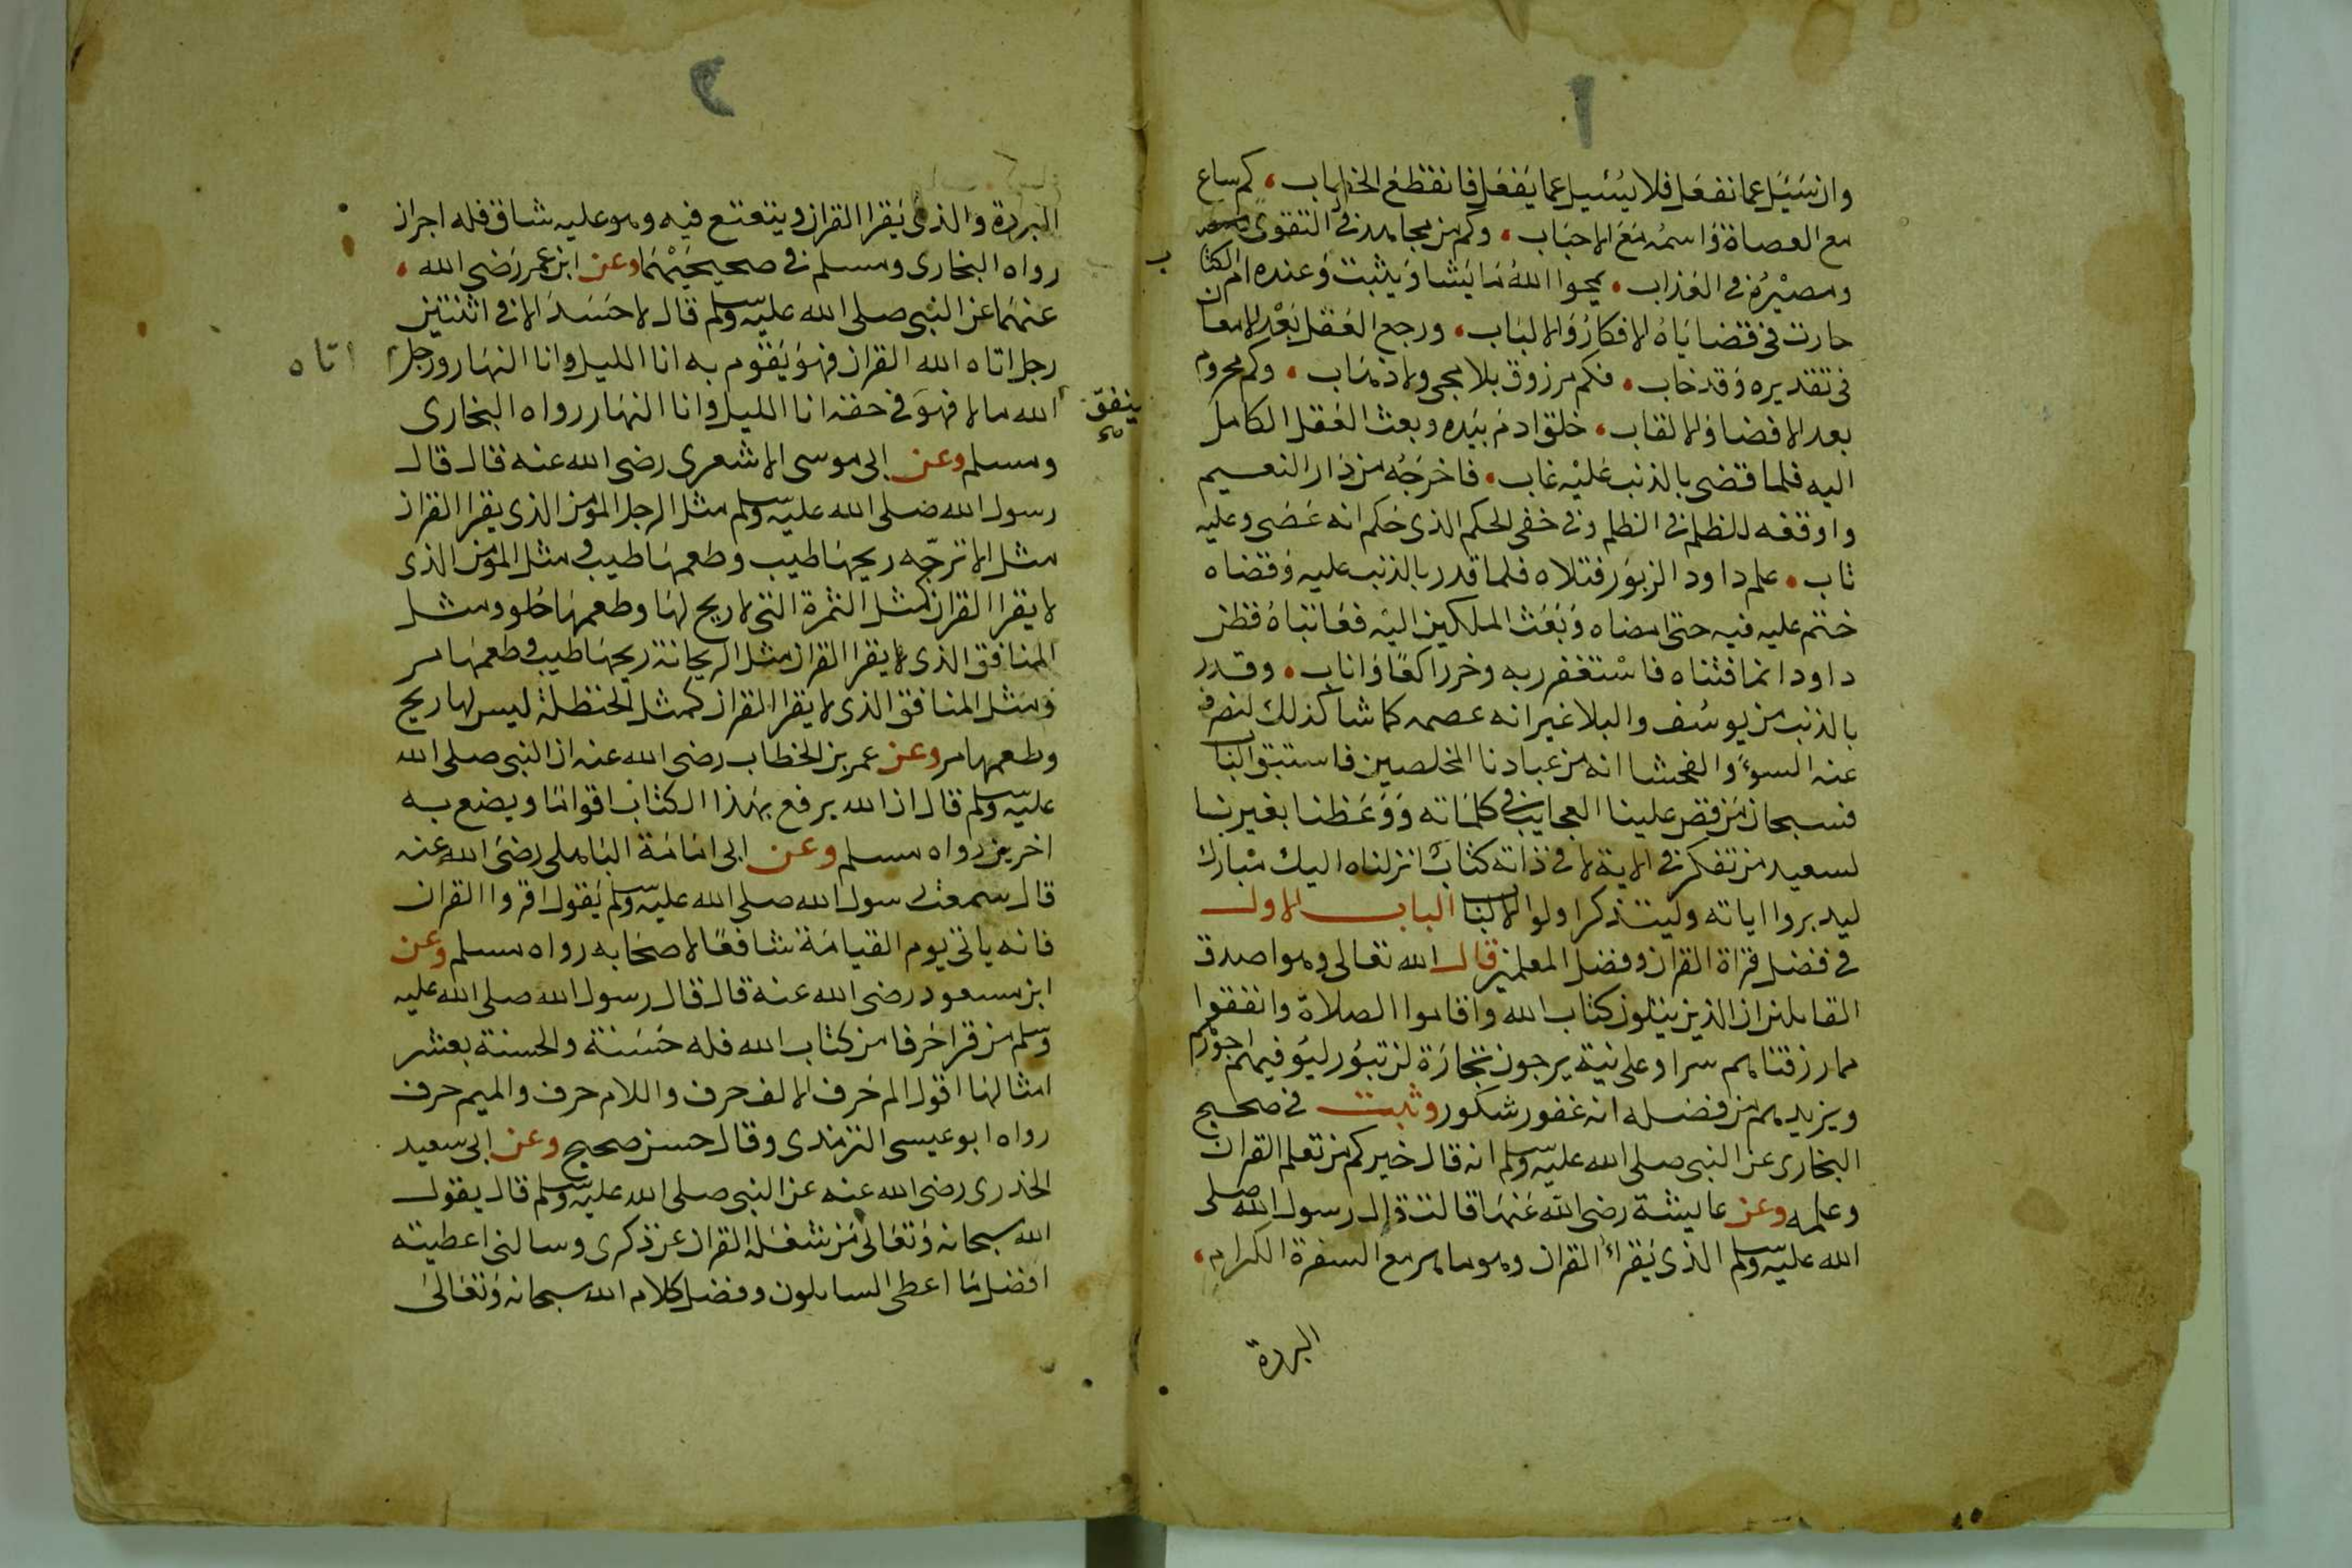 ١
وان سَيَل عما نفعل فلا يُسئيل عما يَفعَل فانقطع الخطاب، كم ساع
مع العصاة وَاسمُه مَعَ الاحبَاب، وكم من مجاهد في التقوى
ومصيْرُه في العَذاب، يمحوا اللهُ مَا يَشا وَيثبت وَعنده ام الكتاب
حارت في قضايَاهُ الافكارُ وَالالبَاب، ورجع العَقل بَعْد الامعان
في تقديره وَقد خاب، فكم مرزوق بلا مجى ولا ذهَاب، وكم محروم
بعد الافضا وَالاتقاب، خلق ادمَ بيَده وبعث العَقل الكامل
اليه فلما قضى بالذنب عَليْه غاب، فاخرَجُه من دَار النعيم
واوقفه للظلم في الظلم وفي خفى الحكم الذى حَكم انه عَصَى وعليه
تاب، علم داود الزبوَر فتلاه فلما قدر بالذنب عليه وَقضاه
ختم عليه فيه حتى امضاه وَبَعَث الملكين اليْه فعَاتبَاهُ فظن
داود انما فتناه فاسْتغفر ربه وخر راكعًا وَاناب، وقدر
بالذنب من يوسُف والبلا غير انه عصمه كما شا كذلك لنصرف
عنه السوءَ والفحشا انه من عبادنا المخلصين فاستبق البَاب
فسبحان مَن قص علينا العجايب في كلمَاته وَوَعَظنا بغيرنا
لسعيد من تفكر في الاية لا في ذاته كتابٌ انزلناه اليك مبَارك
ليدبروا اياته وليتذكر اولوا الالباب الباب الاول
في فضل قراة القران وفضل المعلمين قال الله تعالى وهو اصدق
القايلين ان الذين يتلون كتاب الله وَاقاموا الصلاة وانفقوا
مما رزقناهم سرا وعلانية يرجون تجارَة لن تبوُر ليوَفيهم اجوْرهم
ويزيدهم من فضله انه غفور شكور وثبت في صحيح
البخارى عن النبي صلى الله عليه وسلم انه قال خيركم من تعلم القران
وعلمه وعن عايشة رضى الله عَنهَا قالت قال رسول الله صلى
الله عليه وسلم الذى يَقرأ القران وهو ماهر مع السفرة الكرام،
البررة
٢
البررة والذى يَقرا القران ويتعتع فيه وهو عليه شاق فله اجران
رواه البخارى ومسلم في صحيحيْهمَا وعن ابن عمر رَضى الله،
عنهمَا عن النبى صلى الله عليه وسلم قال لا حَسَدَ الا في اثنتين
رجل اتاه الله القران فهوَ يَقوم به انا الليل وانا النهَار ورجل اتاه
الله مالا فهوَ ينفق في حقه انا الليل وانا النهَار رواه البخارى
ومسلم وعن ابى موسى الاشعرى رضى الله عنه قال قال
رسول الله صَلى الله عليه وسلم مثل الرجل المؤمن الذى يقرا القران
مثل الاترجّه ريحهَا طيب وطعمهَا طيب ومثل المؤمن الذى
لا يقرا القران كمثل التمرة التى لا ريح لهَا وطعمهَا حُلو ومثل
المنافق الذى لا يقرا القران مثل الريحانة ريحهَا طيب وطعمهَا مر
وَمثل المنافق الذى لا يقرا القران كمثل الحنظلة ليس لها ريح
وطعمها مر وعن عمر بن الخطاب رضى الله عنه ان النبى صلى الله
عليه وسلم قال ان الله يرفع بهَذا الكتاب اقوامَا ويضع به
اخرين رواه مسلم وعن ابى امَامَة البَاهلى رضىَ الله عنه
قال سمعت رسول الله صلى الله عليه وسلم يَقول اقروا القران
فانه ياتى يوم القيامَة شافعًا لاصحَابه رواه مسلم وعن
ابن مسعود رضى الله عنه قال قال رسول الله صلى الله عليه
وسلم من قرا حَرفا من كتاب الله فله حَسَنة والحسنة بعشر
امثالهَا اقول الم حَرف الالف حرف واللام حرف والميم حرف
رواه ابو عيسى الترمذى وقال حسن صحيح وعن ابى سعيد
الخدرى رضى الله عنه عن النبى صلى الله عليه وسلم قال يقول
الله سبحانه وَتعَالى مَن شغَله القران عن ذكرى وسالنى اعطيته
افضل مَا اعطى السايلون وفضل كلام الله سبحانه وَتعَالىَ